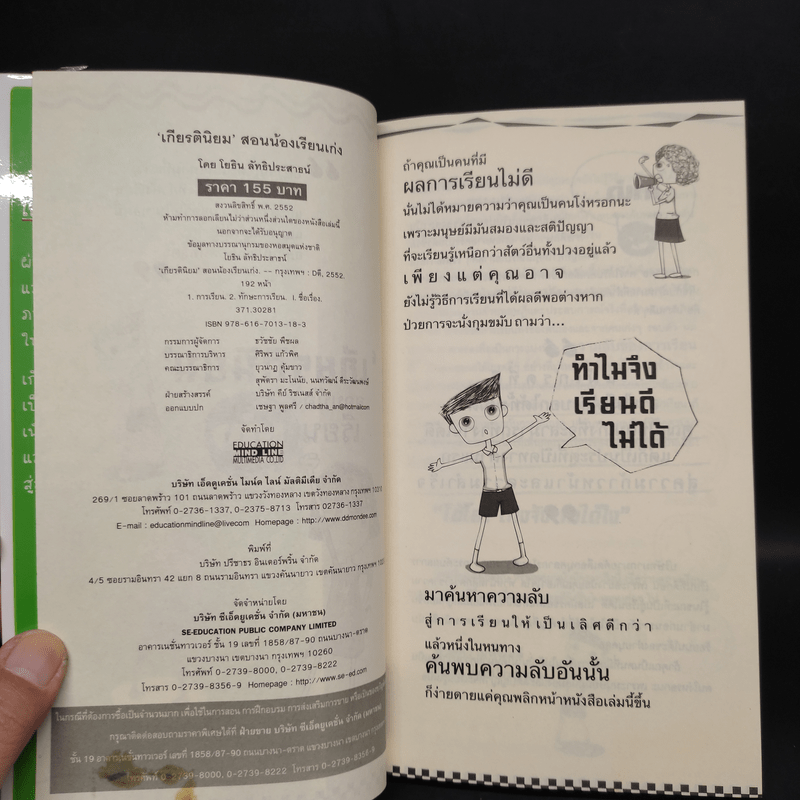 'เกียรตินิยม' สอนน้องเรียนเก่ง
โดย โยธิน ลัทธิประสาธน์
ราคา 155 บาท
สงวนลิขสิทธิ์ พ.ศ. 2552
ห้ามทำการลอกเลียนไม่ว่าส่วนหนึ่งส่วนใดของหนังสือเล่มนี้
นอกจากจะได้รับอนุญาต
ข้อมูลทางบรรณานุกรมของหอสมุดแห่งชาติ
โยธิน ลัทธิประสาธน์
'เกียรตินิยม' สอนน้องเรียนเก่ง. -- กรุงเทพฯ : ดีดี, 2552.
192 หน้า
1. การเรียน. 2. ทักษะการเรียน. I. ชื่อเรื่อง.
371.30281
ISBN 978-616-7013-18-3
กรรมการผู้จัดการ ธวัชชัย พืชผล
บรรณาธิการบริหาร ศิริพร แก้วพิศ
คณะบรรณาธิการ ยุวนาฏ คุ้มขาว
สุพัตรา มะโนนัย, นนทวัฒน์ ตีระวัฒนพงษ์
ฝ่ายสร้างสรรค์ บริษัท คีย์ ริชเนสส์ จำกัด
ออกแบบปก เชษฐา พูลศรี / chadtha_an@hotmail.com
จัดทำโดย
EDUCATION
MIND LINE
MULTIMEDIA CO.,LTD
บริษัท เอ็ดดูเคชั่น ไมนด์ ไลน์ มัลติมีเดีย จำกัด
269/1 ซอยลาดพร้าว 101 ถนนลาดพร้าว แขวงวังทองหลาง เขตวังทองหลาง กรุงเทพฯ
โทรศัพท์ 0-2736-1337, 0-2375-8713 โทรสาร 02736-1337
E-mail : educationmindline@livecom Homepage : http://www.ddmondee.com
พิมพ์ที่
บริษัท ปรีชาธร อินเตอร์พริ้น จำกัด
4/5 ซอยรามอินทรา 42 แยก 8 ถนนรามอินทรา แขวงคันนายาว เขตคันนายาว กรุงเทพฯ
จัดจำหน่ายโดย
บริษัท ซีเอ็ดยูเคชั่น จำกัด (มหาชน)
SE-EDUCATION PUBLIC COMPANY LIMITED
อาคารเนชั่นทาวเวอร์ ชั้น 19 เลขที่ 1858/87-90 ถนนบางนา-ตราด
แขวงบางนา เขตบางนา กรุงเทพฯ 10260
โทรศัพท์ 0-2739-8000, 0-2739-8222
โทรสาร 0-2739-8356-9 Homepage : http://www.se-ed.com
ในกรณีที่ต้องการซื้อเป็นจำนวนมาก เพื่อใช้ในการสอน การฝึกอบรม การส่งเสริมการขาย หรือเป็นของ
กรุณาติดต่อสอบถามราคาพิเศษได้ที่ ฝ่ายขาย บริษัท ซีเอ็ดยูเคชั่น จำกัด (มหาชน)
ชั้น 19 อาคารเนชั่นทาวเวอร์ เลขที่ 1858/87-90 ถนนบางนา-ตราด แขวงบางนา เขตบางนา
โทรศัพท์ 0-2739-8000, 0-2739-8222 โทรสาร 0-2739-8356-9
ถ้าคุณเป็นคนที่มี
ผลการเรียนไม่ดี
นั่นไม่ได้หมายความว่าคุณเป็นคนโง่หรอกนะ
เพราะมนุษย์มีมันสมองและสติปัญญา
ที่จะเรียนรู้เหนือกว่าสัตว์อื่นทั้งปวงอยู่แล้ว
เพียงแต่คุณอาจ
ยังไม่รู้วิธีการเรียนที่ได้ผลดีพอต่างหาก
ป่วยการจะนั่งกุมขมับ ถามว่า...
ทำไมจึง
เรียนดี
ไม่ได้
มาค้นหาความลับ
สู่การเรียนให้เป็นเลิศดีกว่า
แล้วหนึ่งในหนทาง
ค้นพบความลับอันนั้น
ก็ง่ายดายแค่คุณพลิกหน้าหนังสือเล่มนี้ขึ้น